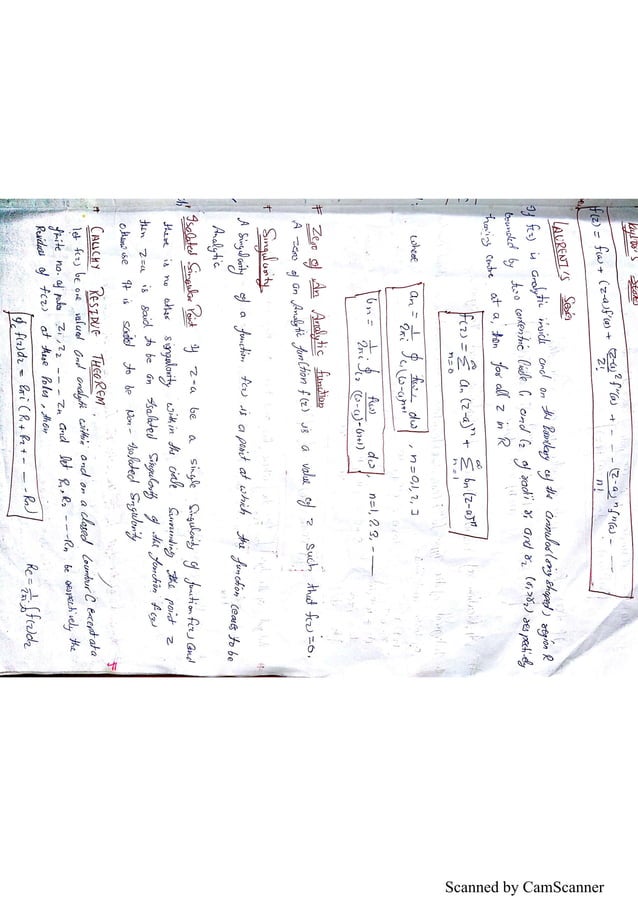 Taylor's Series
f(z) = f(a) + (z-a)f'(a) + (z-a)²/2! f''(a) + - - - - (z-a)ⁿ/n! fⁿ(a) - - -
LAURENT'S Series
If f(z) is analytic inside and on the Boundary of the annular (ring shaped) region R
bounded by two concentric Circle C₁ and C₂ of radii r₁ and r₂ (r₁>r₂) respectively
having centre at a, then for all z in R
f(z) = ∞ Σ n=0 an (z-a)ⁿ + ∞ Σ n=1 bn (z-a)⁻ⁿ
where
an = 1/2πi ∮c₁ f(w)/(w-a)ⁿ⁺¹ dw , n=0,1,2,
bn = 1/2πi ∮c₂ f(w)/(w-a)-(n+1) dw , n=1,2,3, - - - -
# Zero of An Analytic function
A zero of an Analytic function f(z) is a value of z such that f(z)=0.
+ Singularity
A Singularity of a function f(z) is a point at which the function ceases to be
Analytic
Isolated Singular Point If z=a be a single Singularity of function f(z) and
there is no other singularity within the circle surrounding the point z
then z=a is said to be an Isolated Singularity of the function f(z)
otherwise it is said to be Non-Isolated Singularity
+ CAUCHY RESIDUE THEOREM.
let f(z) be one valued and analytic within and on a closed Contour C except at a
finite no. of poles z₁, z₂ - - - - zn and let R₁, R₂ - - - - Rn be respectively the
Residues of f(z) at these Poles, then
∮c f(z)dz = 2πi (R₁+R₂+ - - - - Rn)
Re = 1/2πi ∫ f(z)dz
Scanned by CamScanner